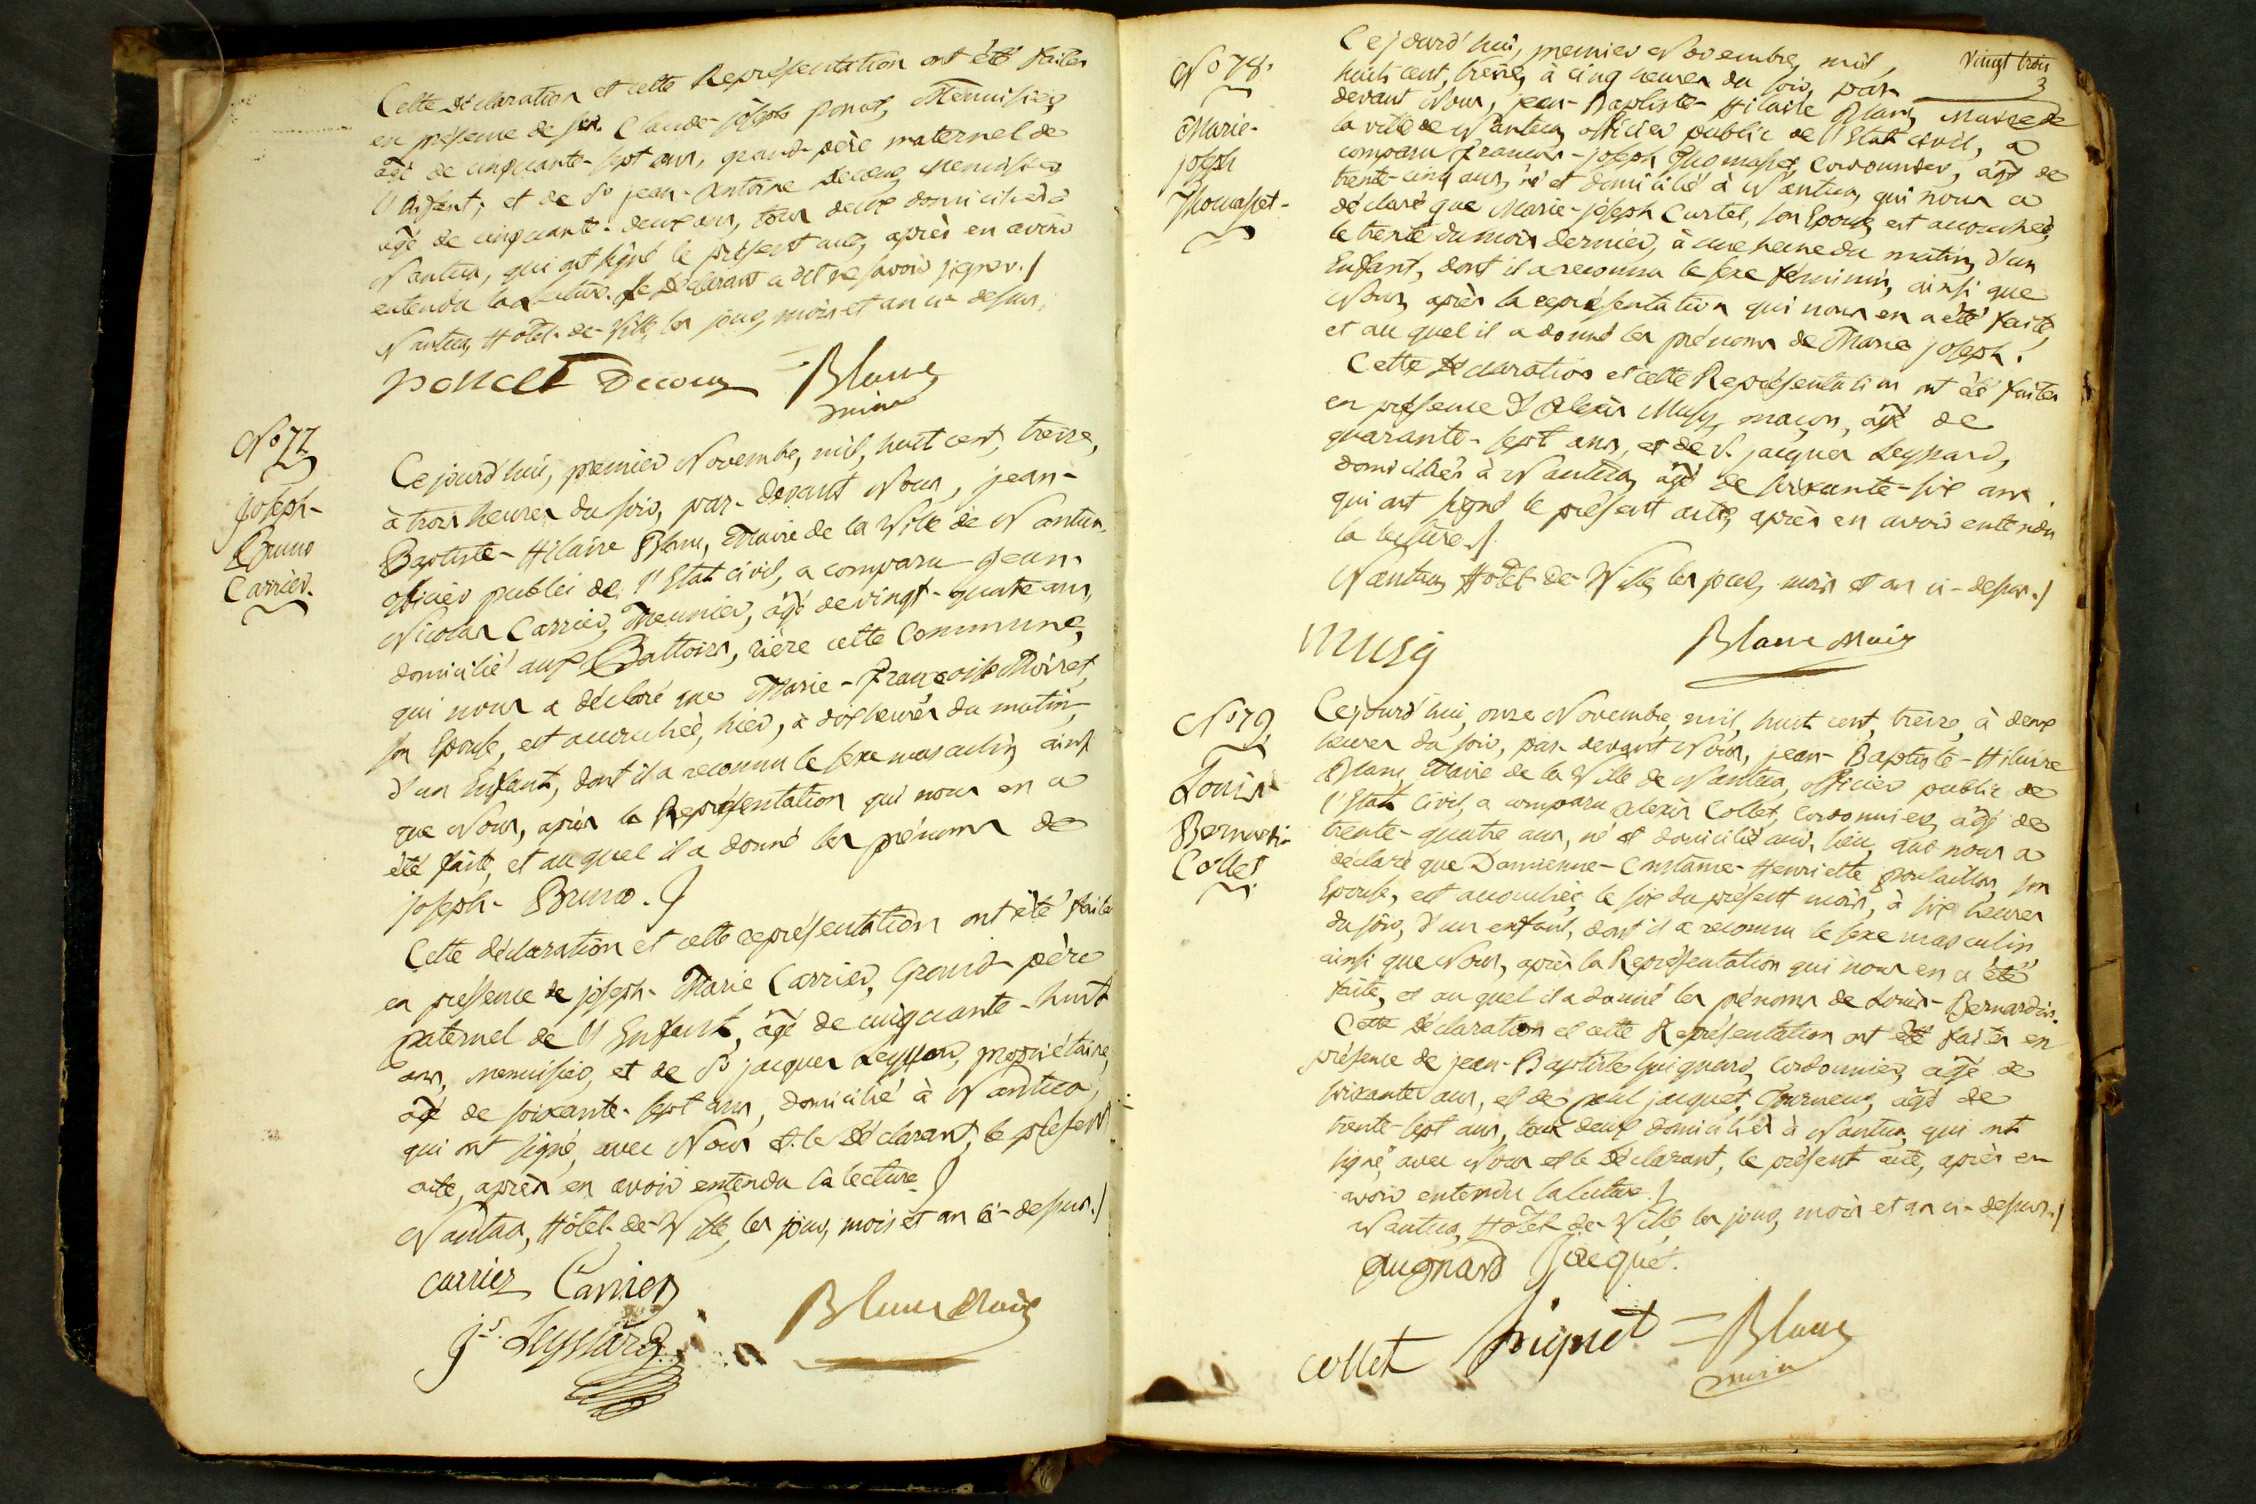 Cette Déclaration et cette Représentation ont été faites
en présence de sr. Claude-joseph poncet, Menuisier,
âgé de cinquante-sept ans, grand-père maternel de
l'Enfant; et de Sr jean-Antoine Decoeur, Menuisier
âgé de cinquante-deux ans, tous deux domiciliés à
Nantua, qui ont signé le présent acte, après en avoir
entendu la lecture. Le Déclarant a dit ne savoir signer./
Nantua, Hôtel-de-Ville, les jour, mois et an ci-dessus.
poncet Decoeur Blanc
maire
No 77
Joseph-
Bruno
Carrier.
Cejourd'hui, premier Novembre, mil, huit cent, treize,
à trois heures du soir, par-devant Nous, jean-
Baptiste-Hilaire Blanc, Maire de la Ville de Nantua
officier public de l'Etat civil, a comparu Jean
Nicolas Carrier, Meunier, âgé de vingt-quatre ans,
domicilié aux Battoirs, rière cette Commune,
qui nous a déclaré que Marie-Françoise Moiret,
son Epouse, est accouchée, hier, à dix heures du matin,
d'un Enfant, dont il a reconnu le sexe masculin, ainsi
que Nous, après la Représentation qui nous en a
été faite, et au quel il a donné les prénoms de
joseph-Bruno./
Cette déclaration et cette représentation ont été faites
en présence de joseph-Marie Carrier, Grand-père
paternel de l'Enfant, âgé de cinquante-huit
ans, menuisier, et de Sr jacques Leyssard, propriétaire,
âgé de soixante-sept ans, domicilié à Nantua,
qui ont signé, avec Nous et le Déclarant, le présent
acte, après en avoir entendu la lecture./
Nantua, Hôtel-de-Ville, les jour, mois et an ci-dessus./
carrier Carrier
Js. Leyssard Blanc Maire
vingt trois
3
No 78.
Marie-
joseph
Thomasset-
Cejourd'hui, premier Novembre, mil,
huit cent, treize, à cinq heures du soir, par
devant Nous, jean-Baptiste-Hilaire Blanc, Maire de
la ville de Nantua, officier public de l'Etat civil, a
comparu François-joseph Thomasset, Cordonnier, âgé de
trente-cinq ans, né et domicilié à Nantua, qui nous a
déclaré que Marie-joseph Curtet, son Epouse, est accouchée,
le trente du mois dernier, à une heure du matin, d'un
Enfant, dont il a reconnu le sexe féminin, ainsi que
Nous, après la représentation qui nous en a été faite,
et au quel il a donné les prénoms de Marie joseph.
Cette Déclaration et cette Représentation ont été faites
en présence d'Alexis Musy, maçon, âgé de
quarante-sept ans, et de Sr. jacques Leyssard,
domiciliés à Nantua, âgé de soixante-six ans
qui ont signé le présent acte, après en avoir entendu
la lecture./
Nantua, Hôtel-de-Ville, les jour, mois et an ci-dessus./
musy Blanc Maire
No 79.
Louis-
Bernardin
Collet
Cejourd'hui, onze Novembre, mil, huit cent, treize, à deux
heures du soir, par-devant Nous, jean-Baptiste-Hilaire
Blanc, Maire de la Ville de Nantua, officier public de
l'Etat Civil, a comparu Alexis Collet, Cordonnier, âgé de
trente-quatre ans, né et domicilié aud. lieu, qui nous a
déclaré que Damienne-Constance-Henriette poulaillon, son
Epouse, est accouchée, le six du présent mois, à six heures
du soir, d'un enfant, dont il a reconnu le sexe masculin
ainsi que Nous, après la Représentation qui nous en a été
faite, et au quel il a donné les prénoms de Louis-Bernardin.
Cette Déclaration et cette Représentation ont été faites en
présence de jean-Baptiste guignard, Cordonnier, âgé de
soixante ans, et de paul jacquet, Tourneur, âgé de
trente-sept ans, tous deux domiciliés à Nantua, qui ont
signé, avec Nous et le Déclarant, le présent acte, après en
avoir entendu la lecture./
Nantua, Hôtel-de-Ville, les jour, mois et an ci-dessus./
guignard Jacquet.
collet Blanc
maire